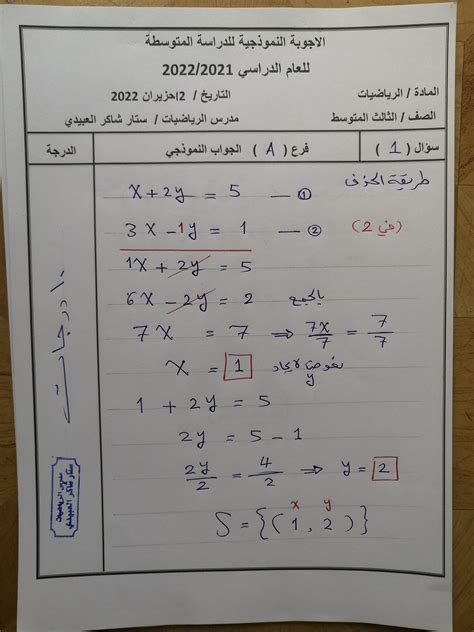 الاجوبة النموذجية للدراسة المتوسطة
للعام الدراسي 2022/2021
المادة / الرياضيات
التاريخ / 12حزيران 2022
الصف / الثالث المتوسط
مدرس الرياضيات / ستار شاكر العبيدي
سؤال ( 1 )
فرع ( A ) الجواب النموذجي
الدرجة
طريقة الحذف
x + 2y = 5 — ①
3x - 1y = 1 — ② (في 2)
1x + 2y = 5
6x - 2y = 2 بالجمع
7x = 7 ⇒ 7x/7 = 7/7
x = 1 نعوض لايجاد y
1 + 2y = 5
2y = 5 - 1
2y/2 = 4/2 ⇒ y = 2
x y
S = {(1, 2)}
10 درجات
مدرس الرياضيات
ستار شاكر العبيدي